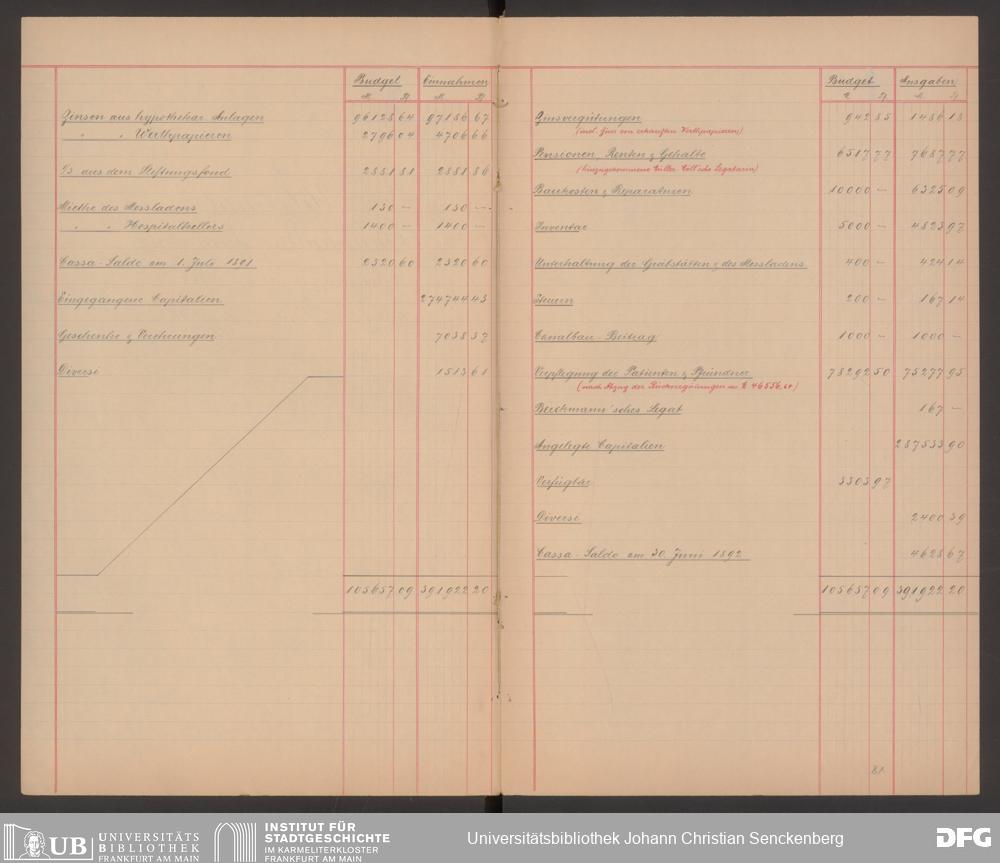 Budget Einnahmen
M. Pf M. Pf
Zinsen aus hypothekar. Anlagen 96128 64 97186 67
" " Werthpapieren 2796 04 4706 66
aus dem Stiftungsfond 2881 81 2881 86
Miethe des Messladens 130 — 130 —
" " Hospitalkellers 1400 — 1400 —
Cassa-Saldo am 1. Juli 1891 2320 60 2320 60
Eingegangene Capitalien 274744 43
Geschenke & Verehrungen 7038 37
Diverse 1513 61
105657 09 391922 20
Budget Ausgaben
M. Pf M. Pf
Zinsvergütungen 942 85 1486 18
(incl. Zins von erkauften Werthpapieren)
Pensionen, Renten & Gehalte 6517 77 7687 77
Baukosten & Reparaturen 10000 — 6325 09
Inventar 5000 — 4823 97
Unterhaltung der Grabstätten & des Messladens 400 — 424 14
Steuern 200 — 167 14
Canalbau-Beitrag 1000 — 1000 —
Verpflegung der Patienten & Pfründner 78292 50 75277 95
(nach Abzug der Rückvergütungen M 46556.64)
Berthmann'sches Legat 167 —
Angelegte Capitalien 287533 90
Verfügbar 3303 97
Diverse 2400 39
Cassa-Saldo am 30. Juni 1892 4628 67
105657 09 391922 20
81.
UB UNIVERSITÄTS
BIBLIOTHEK
FRANKFURT AM MAIN
INSTITUT FÜR
STADTGESCHICHTE
IM KARMELITERKLOSTER
FRANKFURT AM MAIN
Universitätsbibliothek Johann Christian Senckenberg
DFG